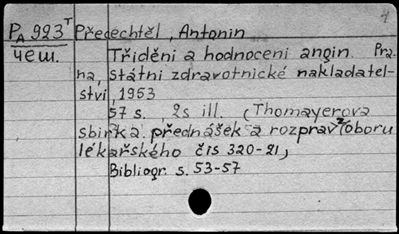 1
PA 923T Přecechtěl, Antonin
чеш. Třiděni a hodnoceni angin. Pra-
ha, státni zdravotnické nakladatel-
stvi, 1953
57 s., 2s ill. (Thomayerova
sbirka přednášek a rozprav z oboru
lékařského čis 320-21)
Bibliogr. s. 53-57